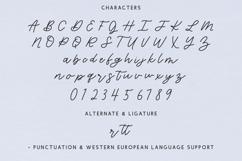 CHARACTERS
A B C D E F G H I J K L M
N O P Q R S T U V W X Y Z
a b c d e f g h i j k l m
n o p q r s t u v w x y z
0 1 2 3 4 5 6 7 8 9
ALTERNATE & LIGATURE
r tt
+ PUNCTUATION & WESTERN EUROPEAN LANGUAGE SUPPORT